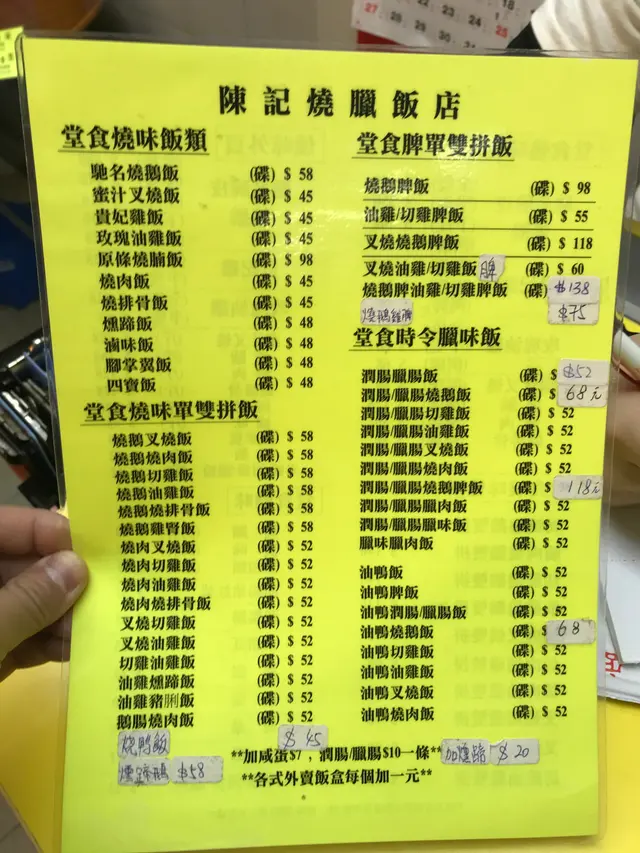 陳記燒臘飯店
堂食燒味飯類
馳名燒鵝飯 (碟) $ 58
蜜汁叉燒飯 (碟) $ 45
貴妃雞飯 (碟) $ 45
玫瑰油雞飯 (碟) $ 45
原條燒腩飯 (碟) $ 98
燒肉飯 (碟) $ 45
燒排骨飯 (碟) $ 45
燻蹄飯 (碟) $ 48
滷味飯 (碟) $ 48
腳掌翼飯 (碟) $ 48
四寶飯 (碟) $ 48
堂食燒味單雙拼飯
燒鵝叉燒飯 (碟) $ 58
燒鵝燒肉飯 (碟) $ 58
燒鵝切雞飯 (碟) $ 58
燒鵝油雞飯 (碟) $ 58
燒鵝燒排骨飯 (碟) $ 58
燒鵝雞腎飯 (碟) $ 58
燒肉叉燒飯 (碟) $ 52
燒肉切雞飯 (碟) $ 52
燒肉油雞飯 (碟) $ 52
燒肉燒排骨飯 (碟) $ 52
叉燒切雞飯 (碟) $ 52
叉燒油雞飯 (碟) $ 52
切雞油雞飯 (碟) $ 52
油雞燻蹄飯 (碟) $ 52
油雞豬脷飯 (碟) $ 52
鵝腸燒肉飯 (碟) $ 52
燒鴨飯 $45
燻蹄鴨 $58
堂食脾單雙拼飯
燒鵝脾飯 (碟) $ 98
油雞/切雞脾飯 (碟) $ 55
叉燒燒鵝脾飯 (碟) $ 118
叉燒油雞/切雞飯 脾 (碟) $ 60
燒鵝脾油雞/切雞脾飯 (碟) $138
燒鵝雞脾 $75
堂食時令臘味飯
潤腸/臘腸飯 (碟) $ $52
潤腸/臘腸燒鵝飯 (碟) $ 68元
潤腸/臘腸切雞飯 (碟) $ 52
潤腸/臘腸油雞飯 (碟) $ 52
潤腸/臘腸叉燒飯 (碟) $ 52
潤腸/臘腸燒肉飯 (碟) $ 52
潤腸/臘腸燒鵝脾飯 (碟) $ 118元
潤腸/臘腸臘肉飯 (碟) $ 52
潤腸/臘腸臘味飯 (碟) $ 52
臘味臘肉飯 (碟) $ 52
油鴨飯 (碟) $ 52
油鴨脾飯 (碟) $ 52
油鴨潤腸/臘腸飯 (碟) $ 52
油鴨燒鵝飯 (碟) $ 68
油鴨切雞飯 (碟) $ 52
油鴨油雞飯 (碟) $ 52
油鴨叉燒飯 (碟) $ 52
油鴨燒肉飯 (碟) $ 52
**加咸蛋$7，潤腸/臘腸$10一條** 加燻蹄 $20
**各式外賣飯盒每個加一元**